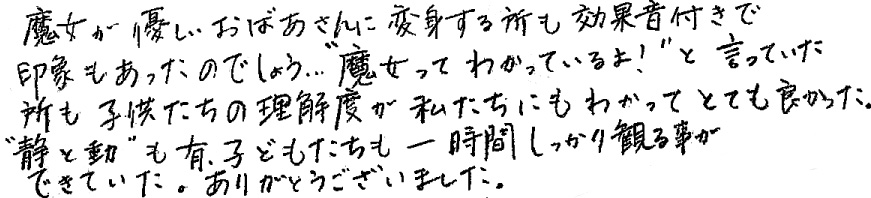 魔女が優しいおばあさんに変身する所も効果音付きで
印象もあったのでしょう…"魔女ってわかっているよ！"と言っていた
所も子供たちの理解度が私たちにもわかってとても良かった。
"静と動"も有、子どもたちも一時間しっかり観る事が
できていた。ありがとうございました。